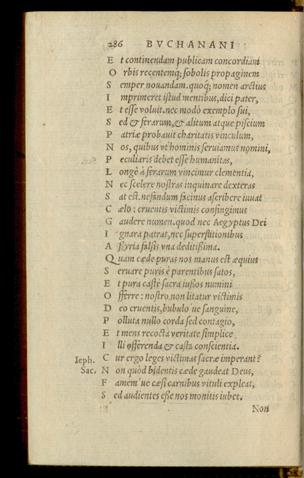 286 BVCHANANI
Et continendam publicam concordiam
Orbis recentemq; sobolis propaginem
Semper nouandam. quoq; nomen arctius
Imprimeret istud mentibus, dici pater,
Et esse voluit. nec modò exemplo sui,
Sed & ferarum, & alitum atque piscium
Patriæ probauit charitatis vinculum,
Nos, quibus vt hominis seruiamus nomini,
Peculiaris debet esse humanitas,
Longè à ferarum vincimur clementia,
Nec scelere nostras inquinare dexteras
Sat est. nefandum facinus ascribere iuuat
Cælo: cruentis victimis confingimus
Gaudere numen. quod nec Aegyptus Dei
Ignara patras, nec superstitionibus
Assyria falsis vna deditissima.
Quam cæde puras nos manus est æquius
Seruare puris è parentibus satos,
Et pura castè sacra iussos numini
Offerre: nostro non litatur victimis
Deo cruentis, bubulo ue sanguine,
Polluta nullo corda sed contagio,
Et mens recocta veritate simplice
Illi offerenda & casta conscientia.
Ieph. Cur ergo leges victimas sacræ imperant?
Sac. Non quòd bidentis cæde gaudeat Deus,
Famem ue cæsi carnibus vituli expleat,
Sed audientes esse nos monitis iubet.
Non